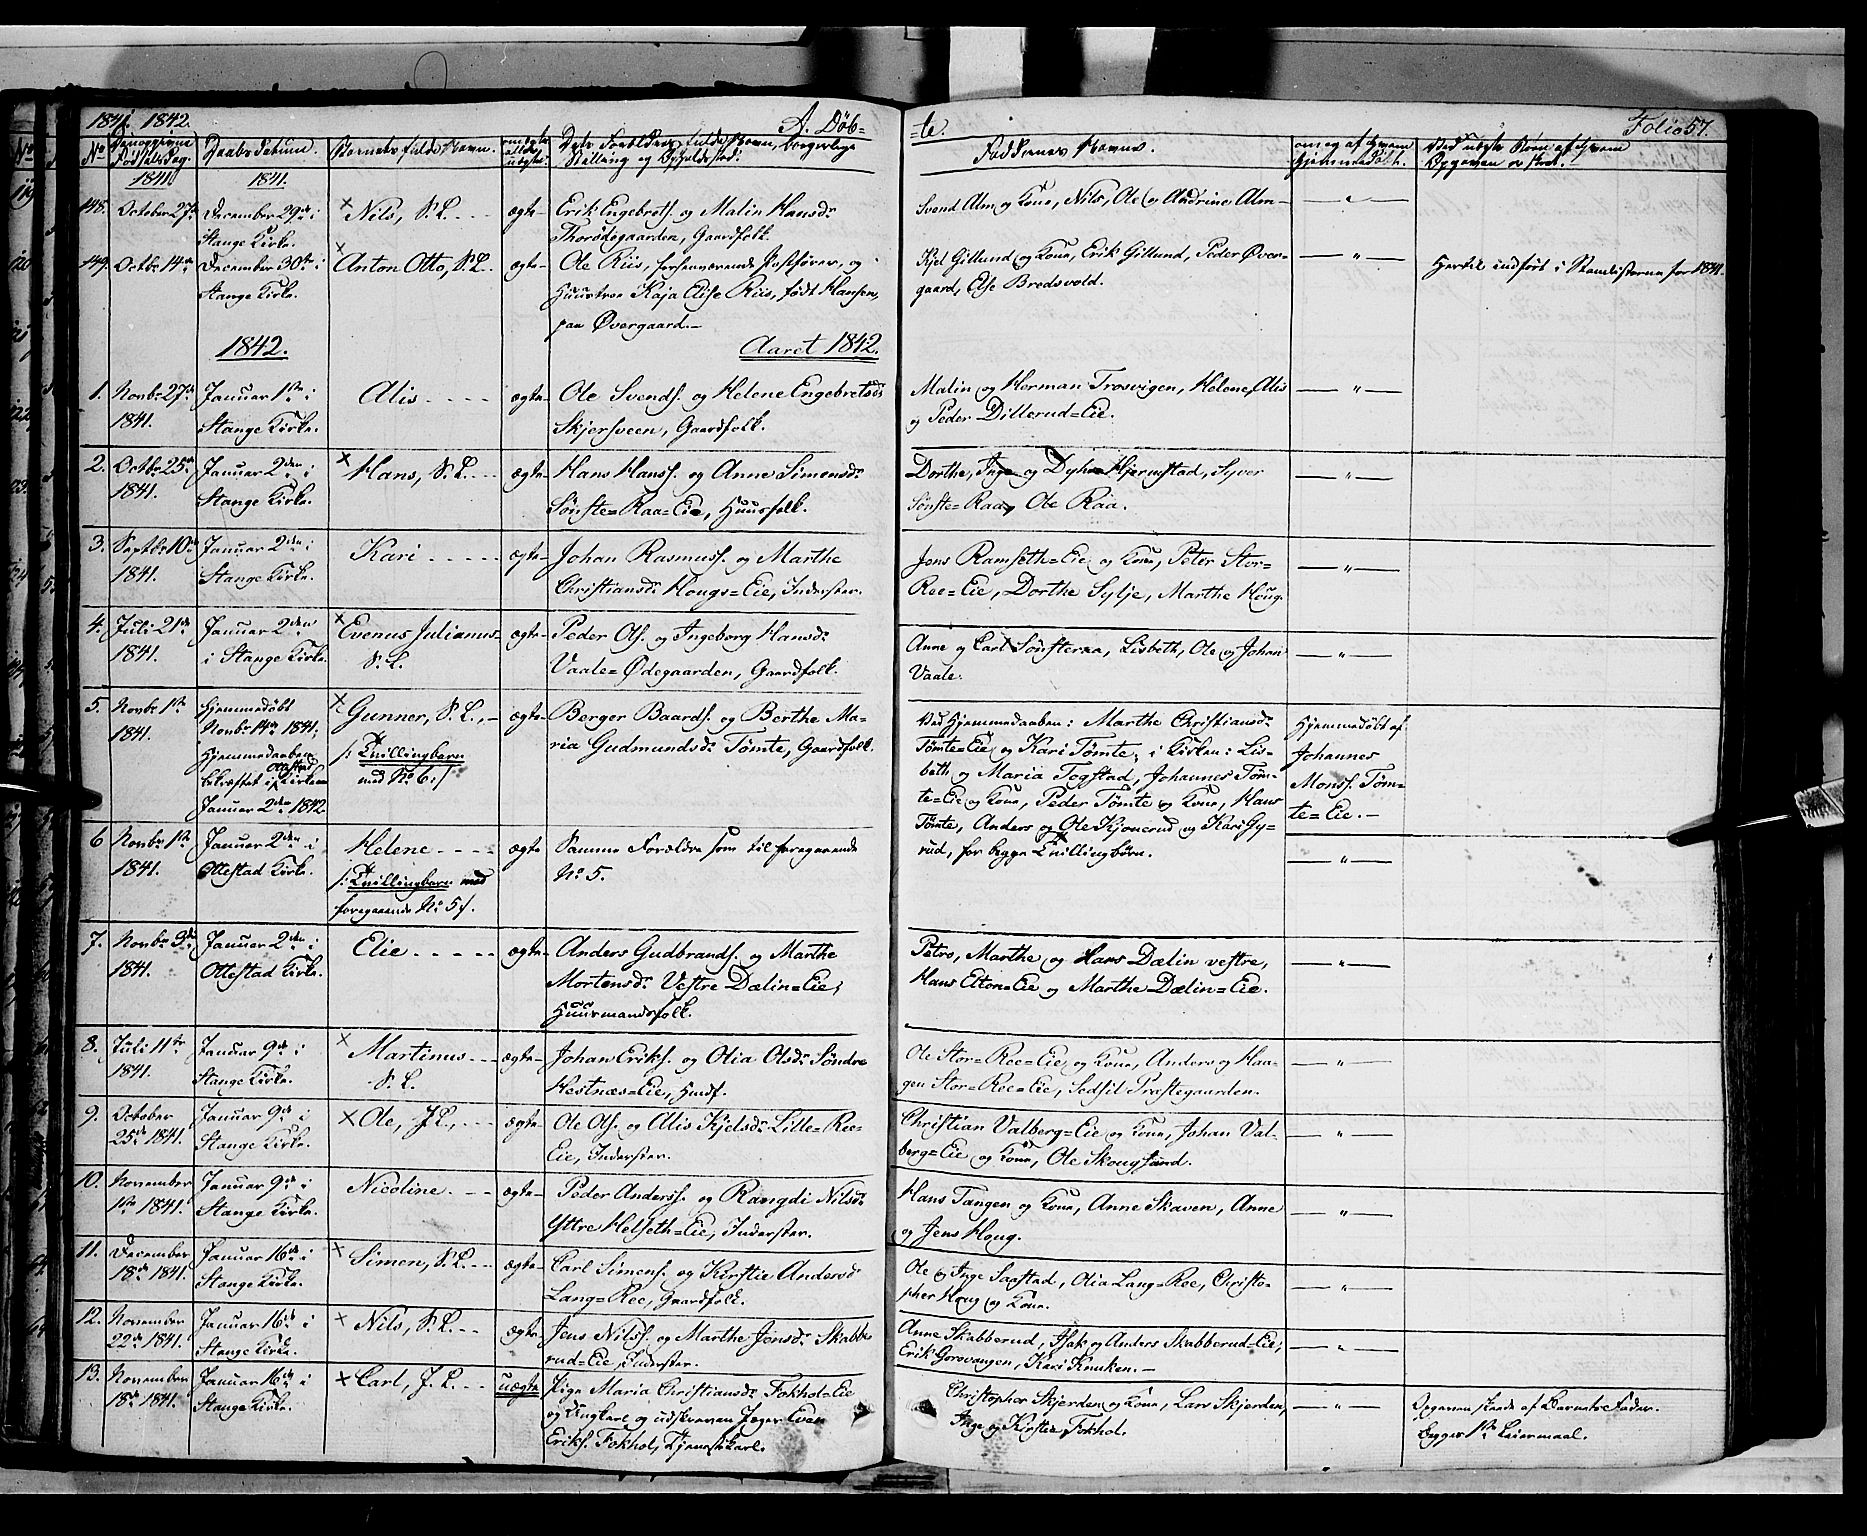 1841. 1842.
A. Døb-
-te.
Folio 57.
No
Daabsdatum.
Barnets fulde Navn.
Faddernes Navne.
1841. 1841.
148. October 27de December 29de i × Nils, S.L. ægte Erik Engebrets. og Malin Hansdr Svend Alm og Kone, Nils, Ole og Andrine Alm — " —
Stange Kirke. Gaardfolk.
149. Octbr 14de December 30te i × Anton Otto, S.L. ægte Ole Riis, og Kjel Gillund og Kone, Erik Gillund, Peder Øver- — " — Hertil indført i Stamlisterne for 1841.
Stange Kirke. Huustroe Kaja Elise Riis, født Hansen, gaard, Else Bredsvold.
paa Øvergaard.
1842. Aaret 1842.
1. Novbr 27de Januar 1ste i Alis ægte Ole Svends. og Helene Engebretsdr Malin og Herman Trosvigen, Helene, Alis — " —
1841. Stange Kirke. Skjerfveen, Gaardfolk. og Peder Dillerud=Eie.
2. Octbr 25de Januar 2den i × Hans, S.L. ægte Hans Hans. og Anne Simensdr Dorthe, Inge og Hjermstad, Syver — " —
1841. Stange Kirke. Sønste=Raa=Eie, Huusfolk. Sønste=Raa, Ole Raa.
3. Septbr 10de Januar 2den i Kari ægte Johan Rasmuss. og Marthe Jens Ramseth=Eie og Kone, Peter Stor= — " —
1841. Stange Kirke. Christiansdr Hougs=Eie, Inderster. Ree=Eie, Dorthe Sylje, Marthe Houg.
4. Juli 21de Januar 2den × Evenus Julianus ægte Peder Ols. og Ingeborg Hansdr Anne og Carl Sønsteraa, Lisbeth, Ole og Johan — " —
1841. i Stange Kirke. S.L. Vaale=Ødegaarden, Gaardfolk. Vaale.
5. Novbr 1ste Hjemmedøbt × Gunner, S.L., ægte Berger Baards. og Berthe Ma- Ved Hjemmedaaben: Marthe Christiansdr Hjemmedøbt af
1841. Novbr 14de 1841. /: Tvillingbarn ria Gudmundsdr Tømte, Gaardfolk. Tømte=Eie og Kari Tømte; i Kirken: Lis- Johannes
Hjemmedaaben med No 6 :/ beth og Maria Togstad, Johannes Tøm- Mons. Tøm-
bekræftet i Ottestad Kirke te=Eie og Kone, Peder Tømte og Kone, Hans te=Eie.
Januar 2den 1842. Tømte, Anders og Ole Kjonerud og Kari Gy-
6 Novbr 1ste Januar 2den i Helene ægte Samme Forældre som til foregaaende rud, for begge Tvillingbørn. — " —
1841. Ottestad Kirke. /: Tvillingbarn med No 5.
foregaaende No 5 :/.
7. Novbr Januar 2den i Elie ægte Anders Gudbrands. og Marthe Petro, Marthe og Hans Dælin vestre, — " —
1841. Ottestad Kirke. Mortensdr Vestre Dælin=Eie, Hans Elton=Eie og Marthe Dælin=Eie.
Huusmandsfolk.
8. Juli 11te Januar 9de i × Martinus ægte Johan Eriks. og Olia Olsdr Søndre Ole Stor=Ree=Eie og Kone, Anders og Haa- — " —
1841. Stange Kirke. S.L. Hestnæs=Eie, Huusf. gen Stor=Ree=Eie, Sedsil Præstegaarden.
9. October Januar 9de i × Ole, J.L., ægte Ole Ols. og Alis Kjelsdr Lille=Ree= Christian Valberg=Eie og Kone, Johan Val- — " —
25de 1841. Stange Kirke. Eie, Inderster. berg=Eie og Kone, Ole Skouglund.
10. November Januar 9de i Nicoline ægte Peder Anders. og Rangdi Nilsdr Hans Tangen og Kone, Anne Skaven, Anne — " —
1ste 1841. Stange Kirke. Yttre Helseth=Eie, Inderster. og Jens Houg.
11. December Januar 16de i × Simen, S.L. ægte Carl Simens. og Kirstie Andersdr Ole og Inge Saastad, Olia Lang=Ree, Christo- — " —
18de 1841. Stange Kirke. Lang=Ree, Gaardfolk. pher Houg og Kone.
12. November Januar 16de i × Nils, S.L. ægte Jens Nils. og Marthe Jensdr Skabbe Anne Skabberud, Isak og Anders Skabberud=Eie, — " —
22de 1841. Stange Kirke. rud=Eie, Inderster. Erik Gorovangen, Kari Knuken.
13. November Januar 16de i × Carl, J.L. uægte Pige Maria Christiansdr Fokhol=Eie Christopher Skjerden og Kone, Lars Skjerden, — " — Opgaven skede af Barnets Fader.
18de 1841. Stange Kirke. og Ungkarl og udskreven Jæger Even Inge og Kirsten Fokhol. Begges 1ste Leiermaal.
Eriks. Fokhol, Tjenestekarl.